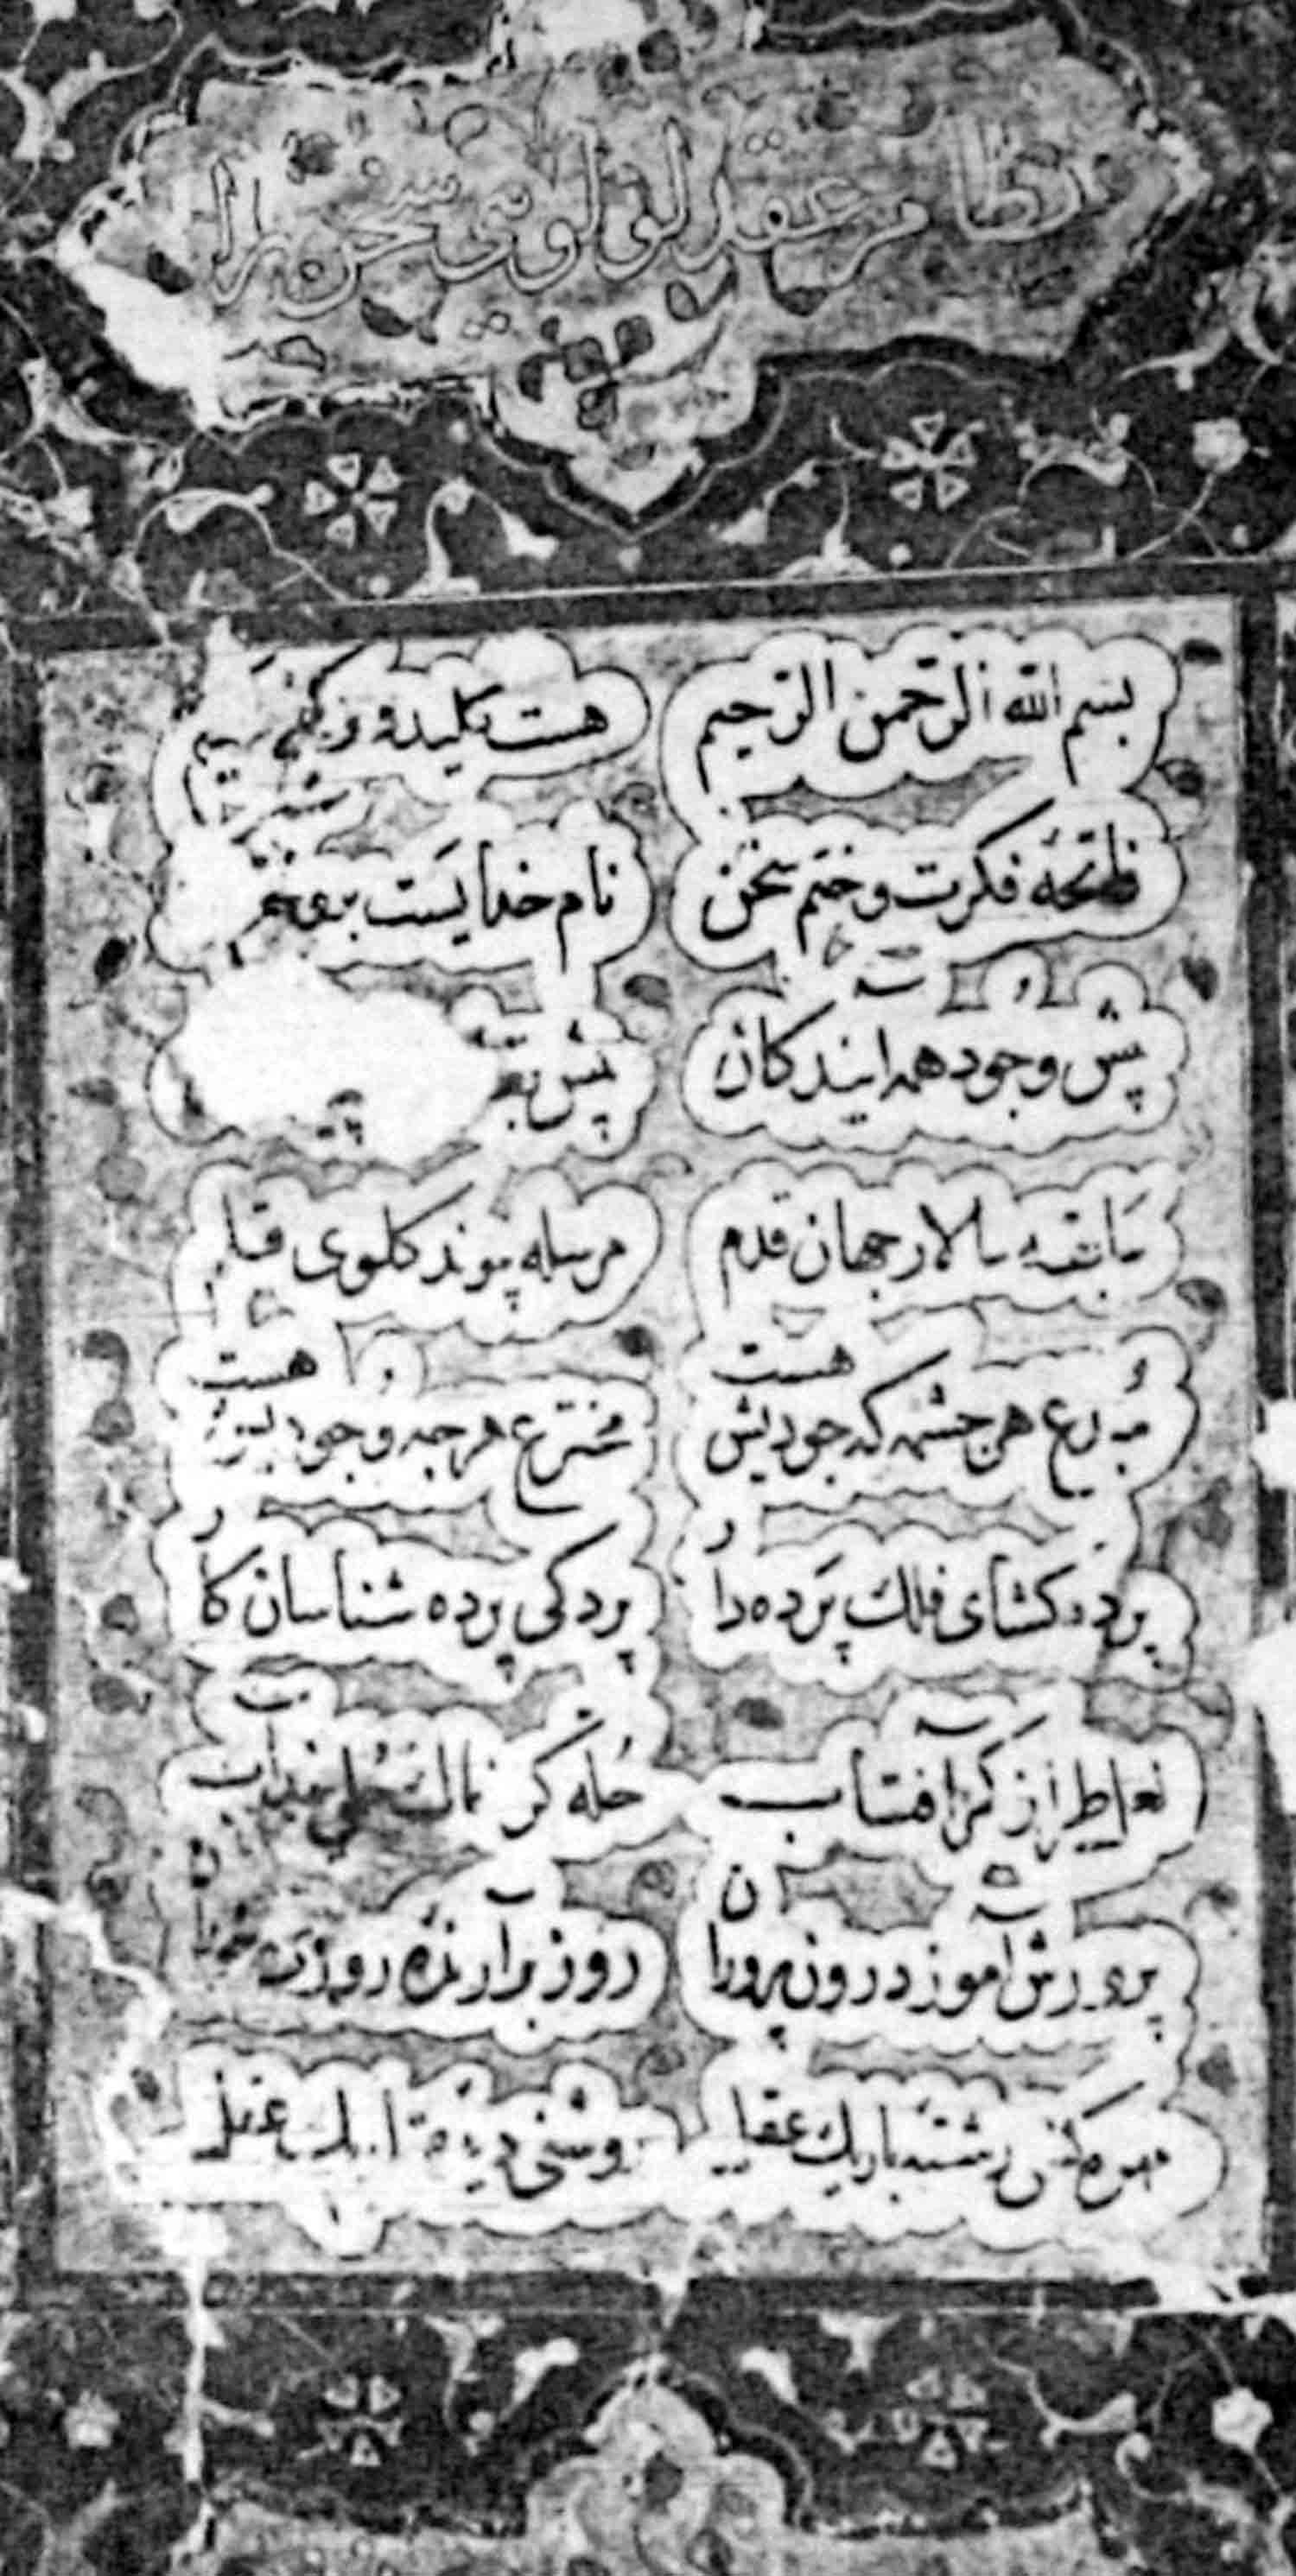 نظام عقد لولوی سخن را
بسم الله الرحمن الرحیم هست کلید در کنج حکیم
فاتحه فکرت و ختم سخن نام خدایست برو ختم
پیش وجود همه ایندکان پیش بقا
سابقه سالار جهان قدم مرسله پیوند کلوی قلم
مبدع هر چشمه که جودیش هست مخترع هرچه وجودیش هست
پرده کشای فلک پرده دار پردکی پرده شناسان کار
لعل طراز کمر آفتاب حله کر خاک و حلی بند آب
پرورش آموز درون پروران روز برآرنده روزی خوران
مهره کش رشته باریک عقل روشنی دیده تاریک عقل